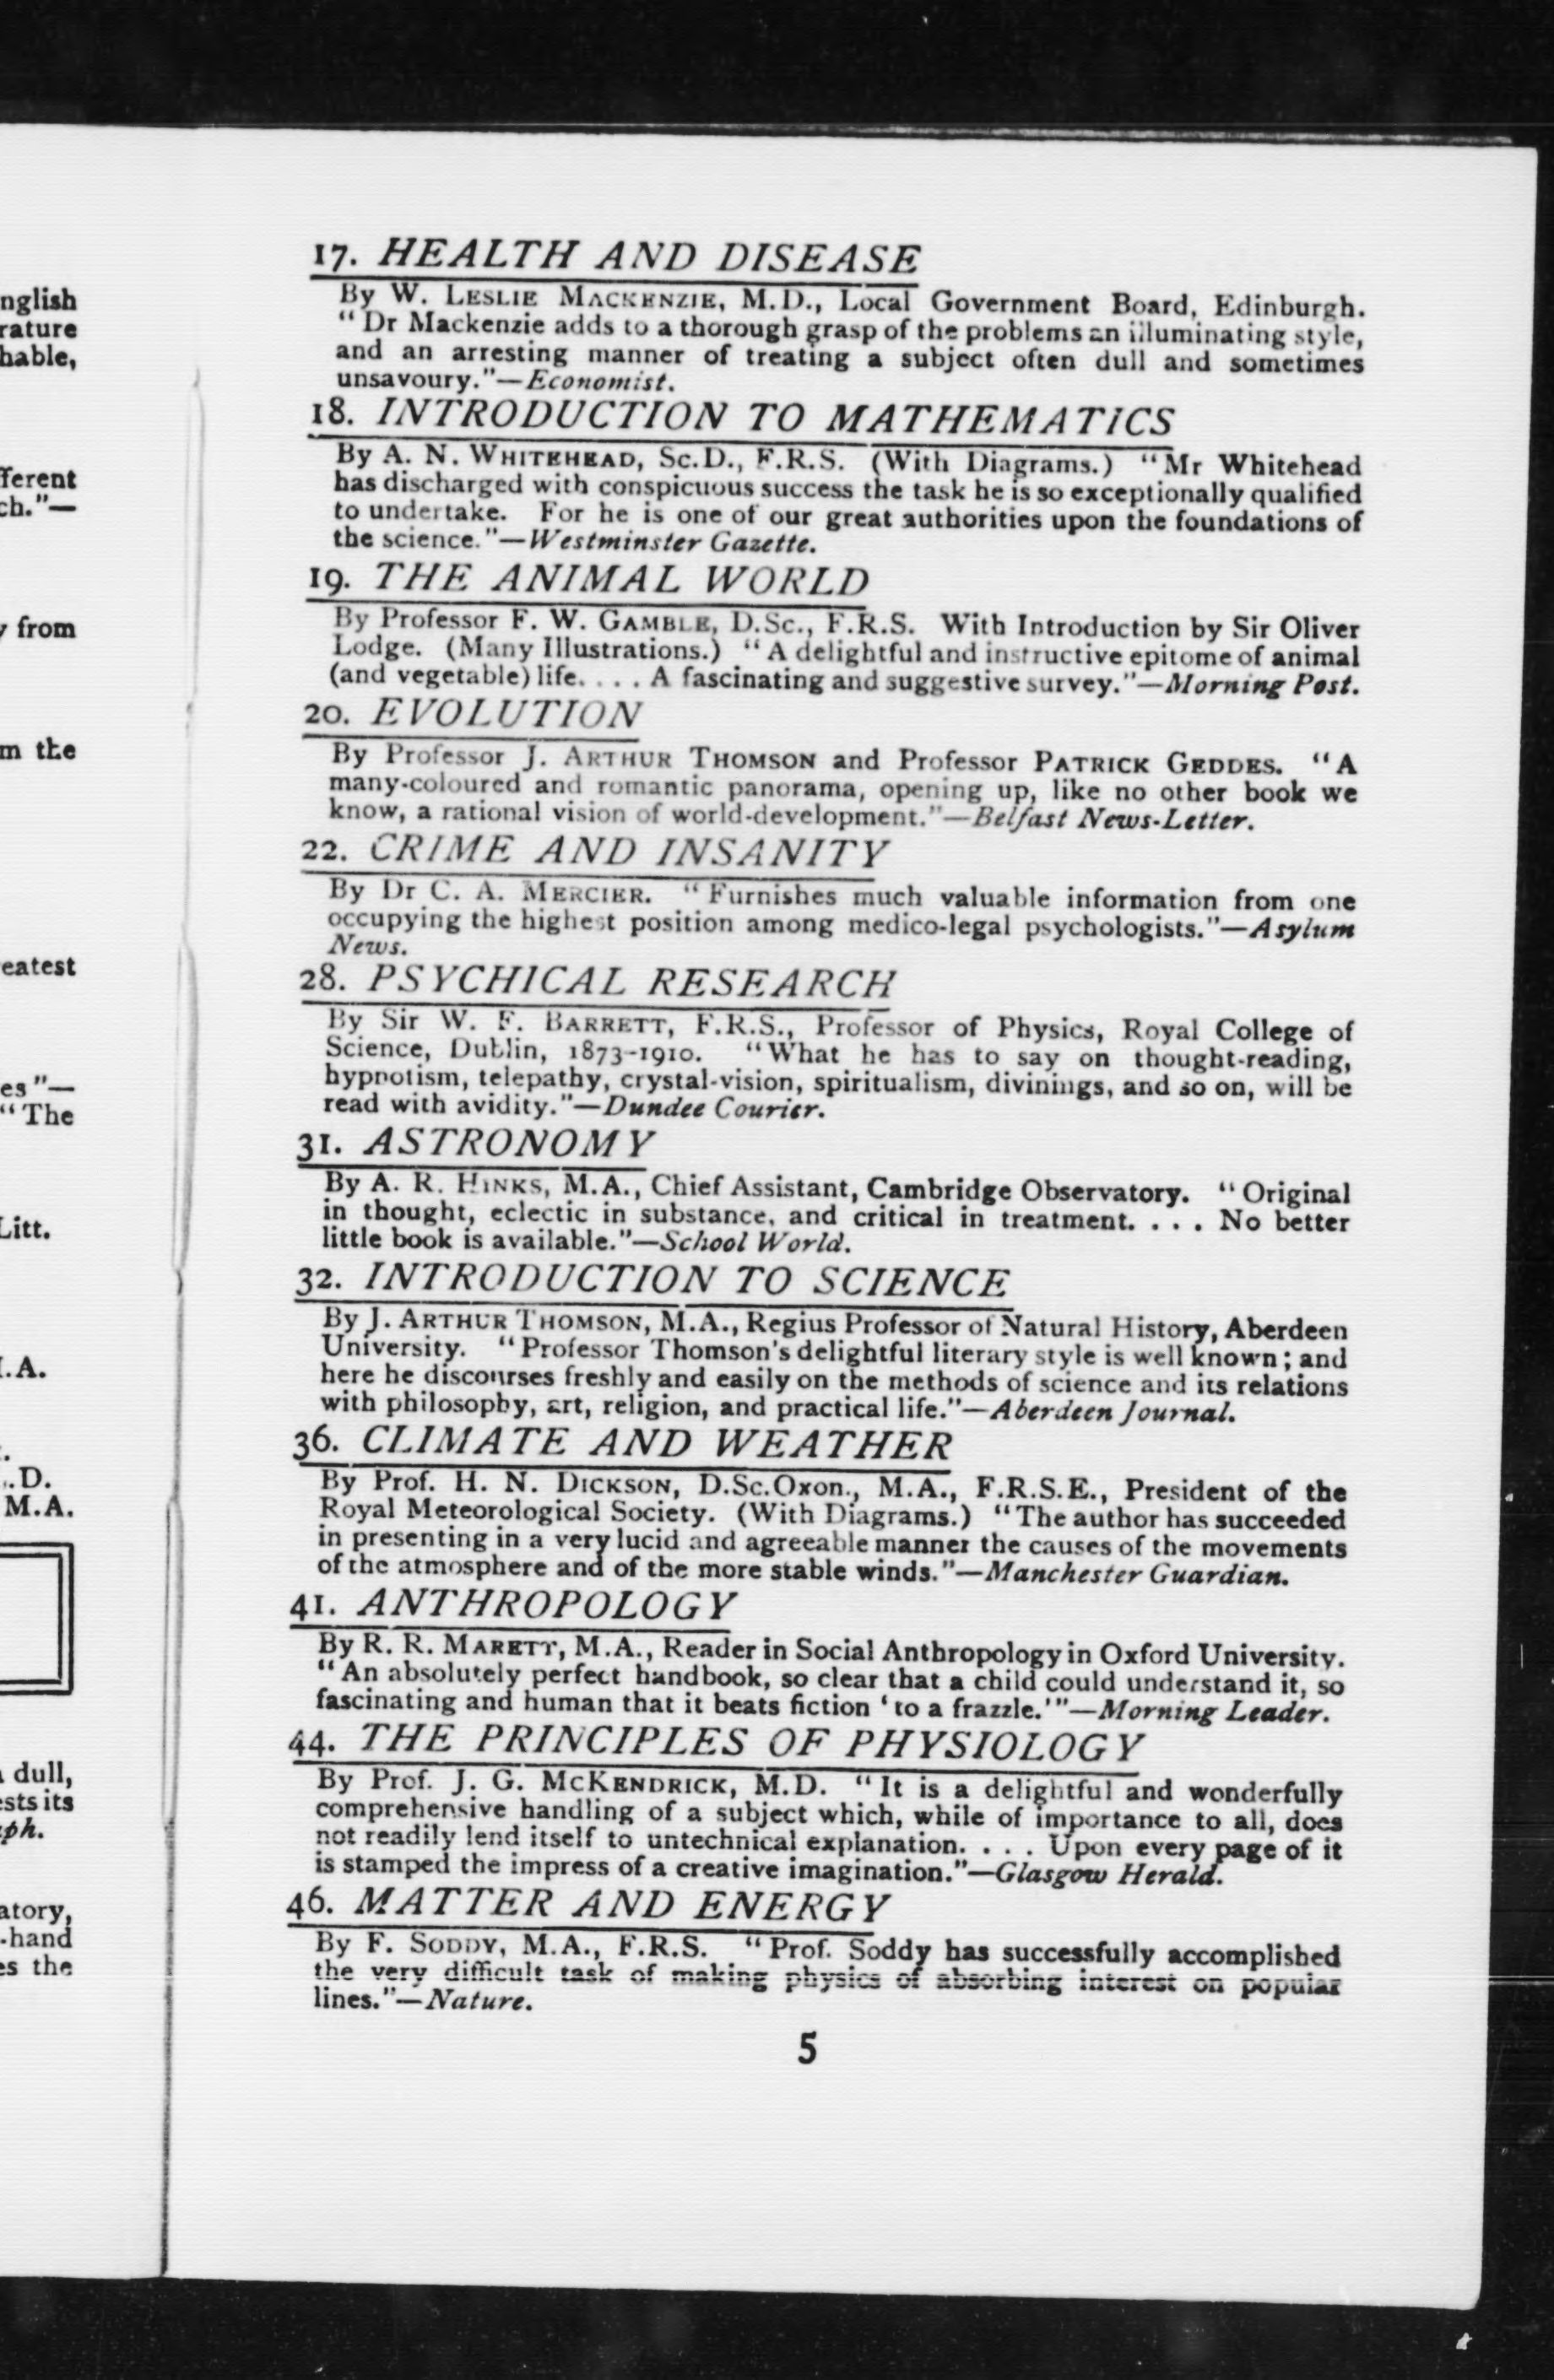 17. HEALTH AND DISEASE
By W. LESLIE MACKENZIE, M.D., Local Government Board, Edinburgh.
"Dr Mackenzie adds to a thorough grasp of the problems an illuminating style,
and an arresting manner of treating a subject often dull and sometimes
unsavoury."—Economist.
18. INTRODUCTION TO MATHEMATICS
By A. N. WHITEHEAD, Sc.D., F.R.S. (With Diagrams.) "Mr Whitehead
has discharged with conspicuous success the task he is so exceptionally qualified
to undertake. For he is one of our great authorities upon the foundations of
the science."—Westminster Gazette.
19. THE ANIMAL WORLD
By Professor F. W. GAMBLE, D.Sc., F.R.S. With Introduction by Sir Oliver
Lodge. (Many Illustrations.) "A delightful and instructive epitome of animal
(and vegetable) life. . . . A fascinating and suggestive survey."—Morning Post.
20. EVOLUTION
By Professor J. ARTHUR THOMSON and Professor PATRICK GEDDES. "A
many-coloured and romantic panorama, opening up, like no other book we
know, a rational vision of world-development."—Belfast News-Letter.
22. CRIME AND INSANITY
By Dr C. A. MERCIER. "Furnishes much valuable information from one
occupying the highest position among medico-legal psychologists."—Asylum
News.
28. PSYCHICAL RESEARCH
By Sir W. F. BARRETT, F.R.S., Professor of Physics, Royal College of
Science, Dublin, 1873-1910. "What he has to say on thought-reading,
hypnotism, telepathy, crystal-vision, spiritualism, divinings, and so on, will be
read with avidity."—Dundee Courier.
31. ASTRONOMY
By A. R. HINKS, M.A., Chief Assistant, Cambridge Observatory. "Original
in thought, eclectic in substance, and critical in treatment. . . . No better
little book is available."—School World.
32. INTRODUCTION TO SCIENCE
By J. ARTHUR THOMSON, M.A., Regius Professor of Natural History, Aberdeen
University. "Professor Thomson's delightful literary style is well known; and
here he discourses freshly and easily on the methods of science and its relations
with philosophy, art, religion, and practical life."—Aberdeen Journal.
36. CLIMATE AND WEATHER
By Prof. H. N. DICKSON, D.Sc.Oxon., M.A., F.R.S.E., President of the
Royal Meteorological Society. (With Diagrams.) "The author has succeeded
in presenting in a very lucid and agreeable manner the causes of the movements
of the atmosphere and of the more stable winds."—Manchester Guardian.
41. ANTHROPOLOGY
By R. R. MARETT, M.A., Reader in Social Anthropology in Oxford University.
"An absolutely perfect handbook, so clear that a child could understand it, so
fascinating and human that it beats fiction 'to a frazzle.'"—Morning Leader.
44. THE PRINCIPLES OF PHYSIOLOGY
By Prof. J. G. MCKENDRICK, M.D. "It is a delightful and wonderfully
comprehensive handling of a subject which, while of importance to all, does
not readily lend itself to untechnical explanation. . . . Upon every page of it
is stamped the impress of a creative imagination."—Glasgow Herald.
46. MATTER AND ENERGY
By F. SODDY, M.A., F.R.S. "Prof. Soddy has successfully accomplished
the very difficult task of making physics of absorbing interest on popular
lines."—Nature.
5